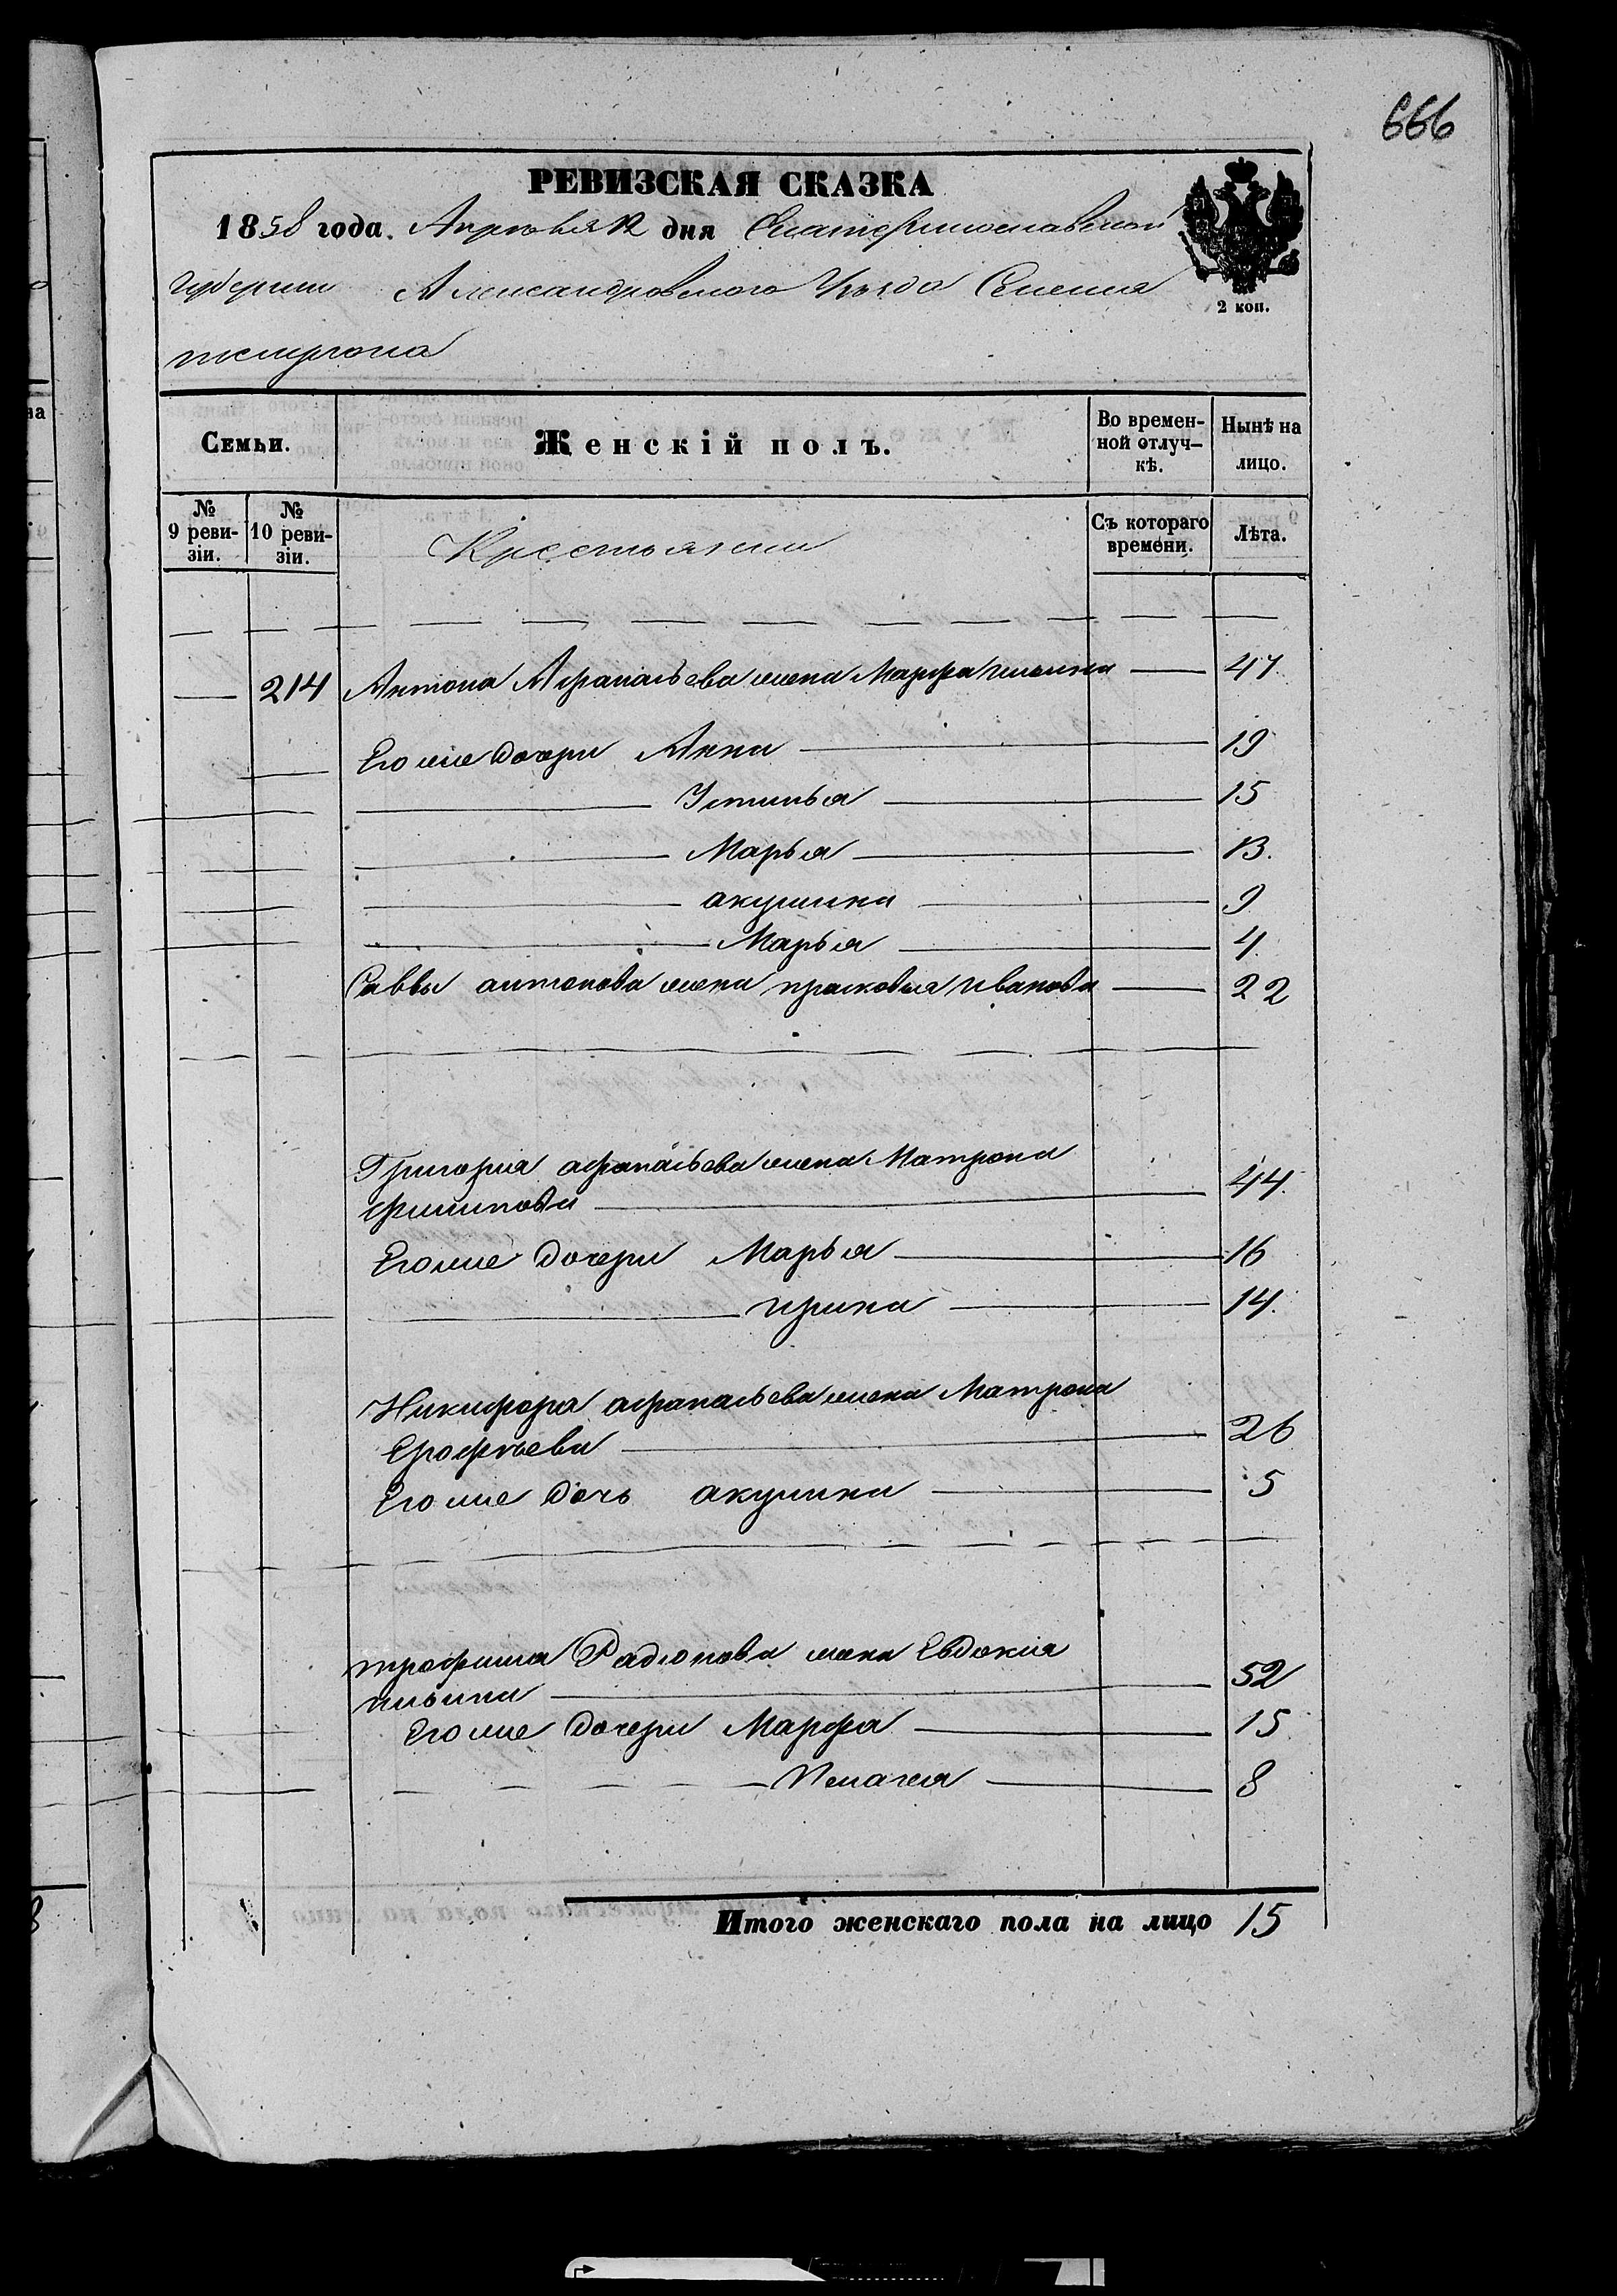 666
РЕВИЗСКАЯ СКАЗКА
1858 года. Апреля 12 дня Екатеринославской
2 коп.
Губернии Александровского Уезда Селения
Семьи. Женскій полъ. Во времен-ной отлуч-кѣ. Нынѣ на лицо.
№ 9 реви-зіи. № 10 реви-зіи. Крестьяне Съ котораго времени. Лѣта.
— 214 Антона Афанасьева жена Марфа ильина — 47
Его же дочери Анна — 19
Устинья — 15
Марья — 13.
акулина — 9
Марья — 4.
Саввы антонова жена прасковья иванова — 22
Григория афанасьева жена Матрона
филипова — 44.
Его же дочери Марья — 16
ирина — 14.
Никифора афанасьева жена Матрона
Ерофеева — 26
Его же дочь акулина — 5
трофима Радионова жена Евдокия
ильина — 52
Его же дочери Марфа — 15
Пелагея — 8
Итого женскаго пола на лицо 15